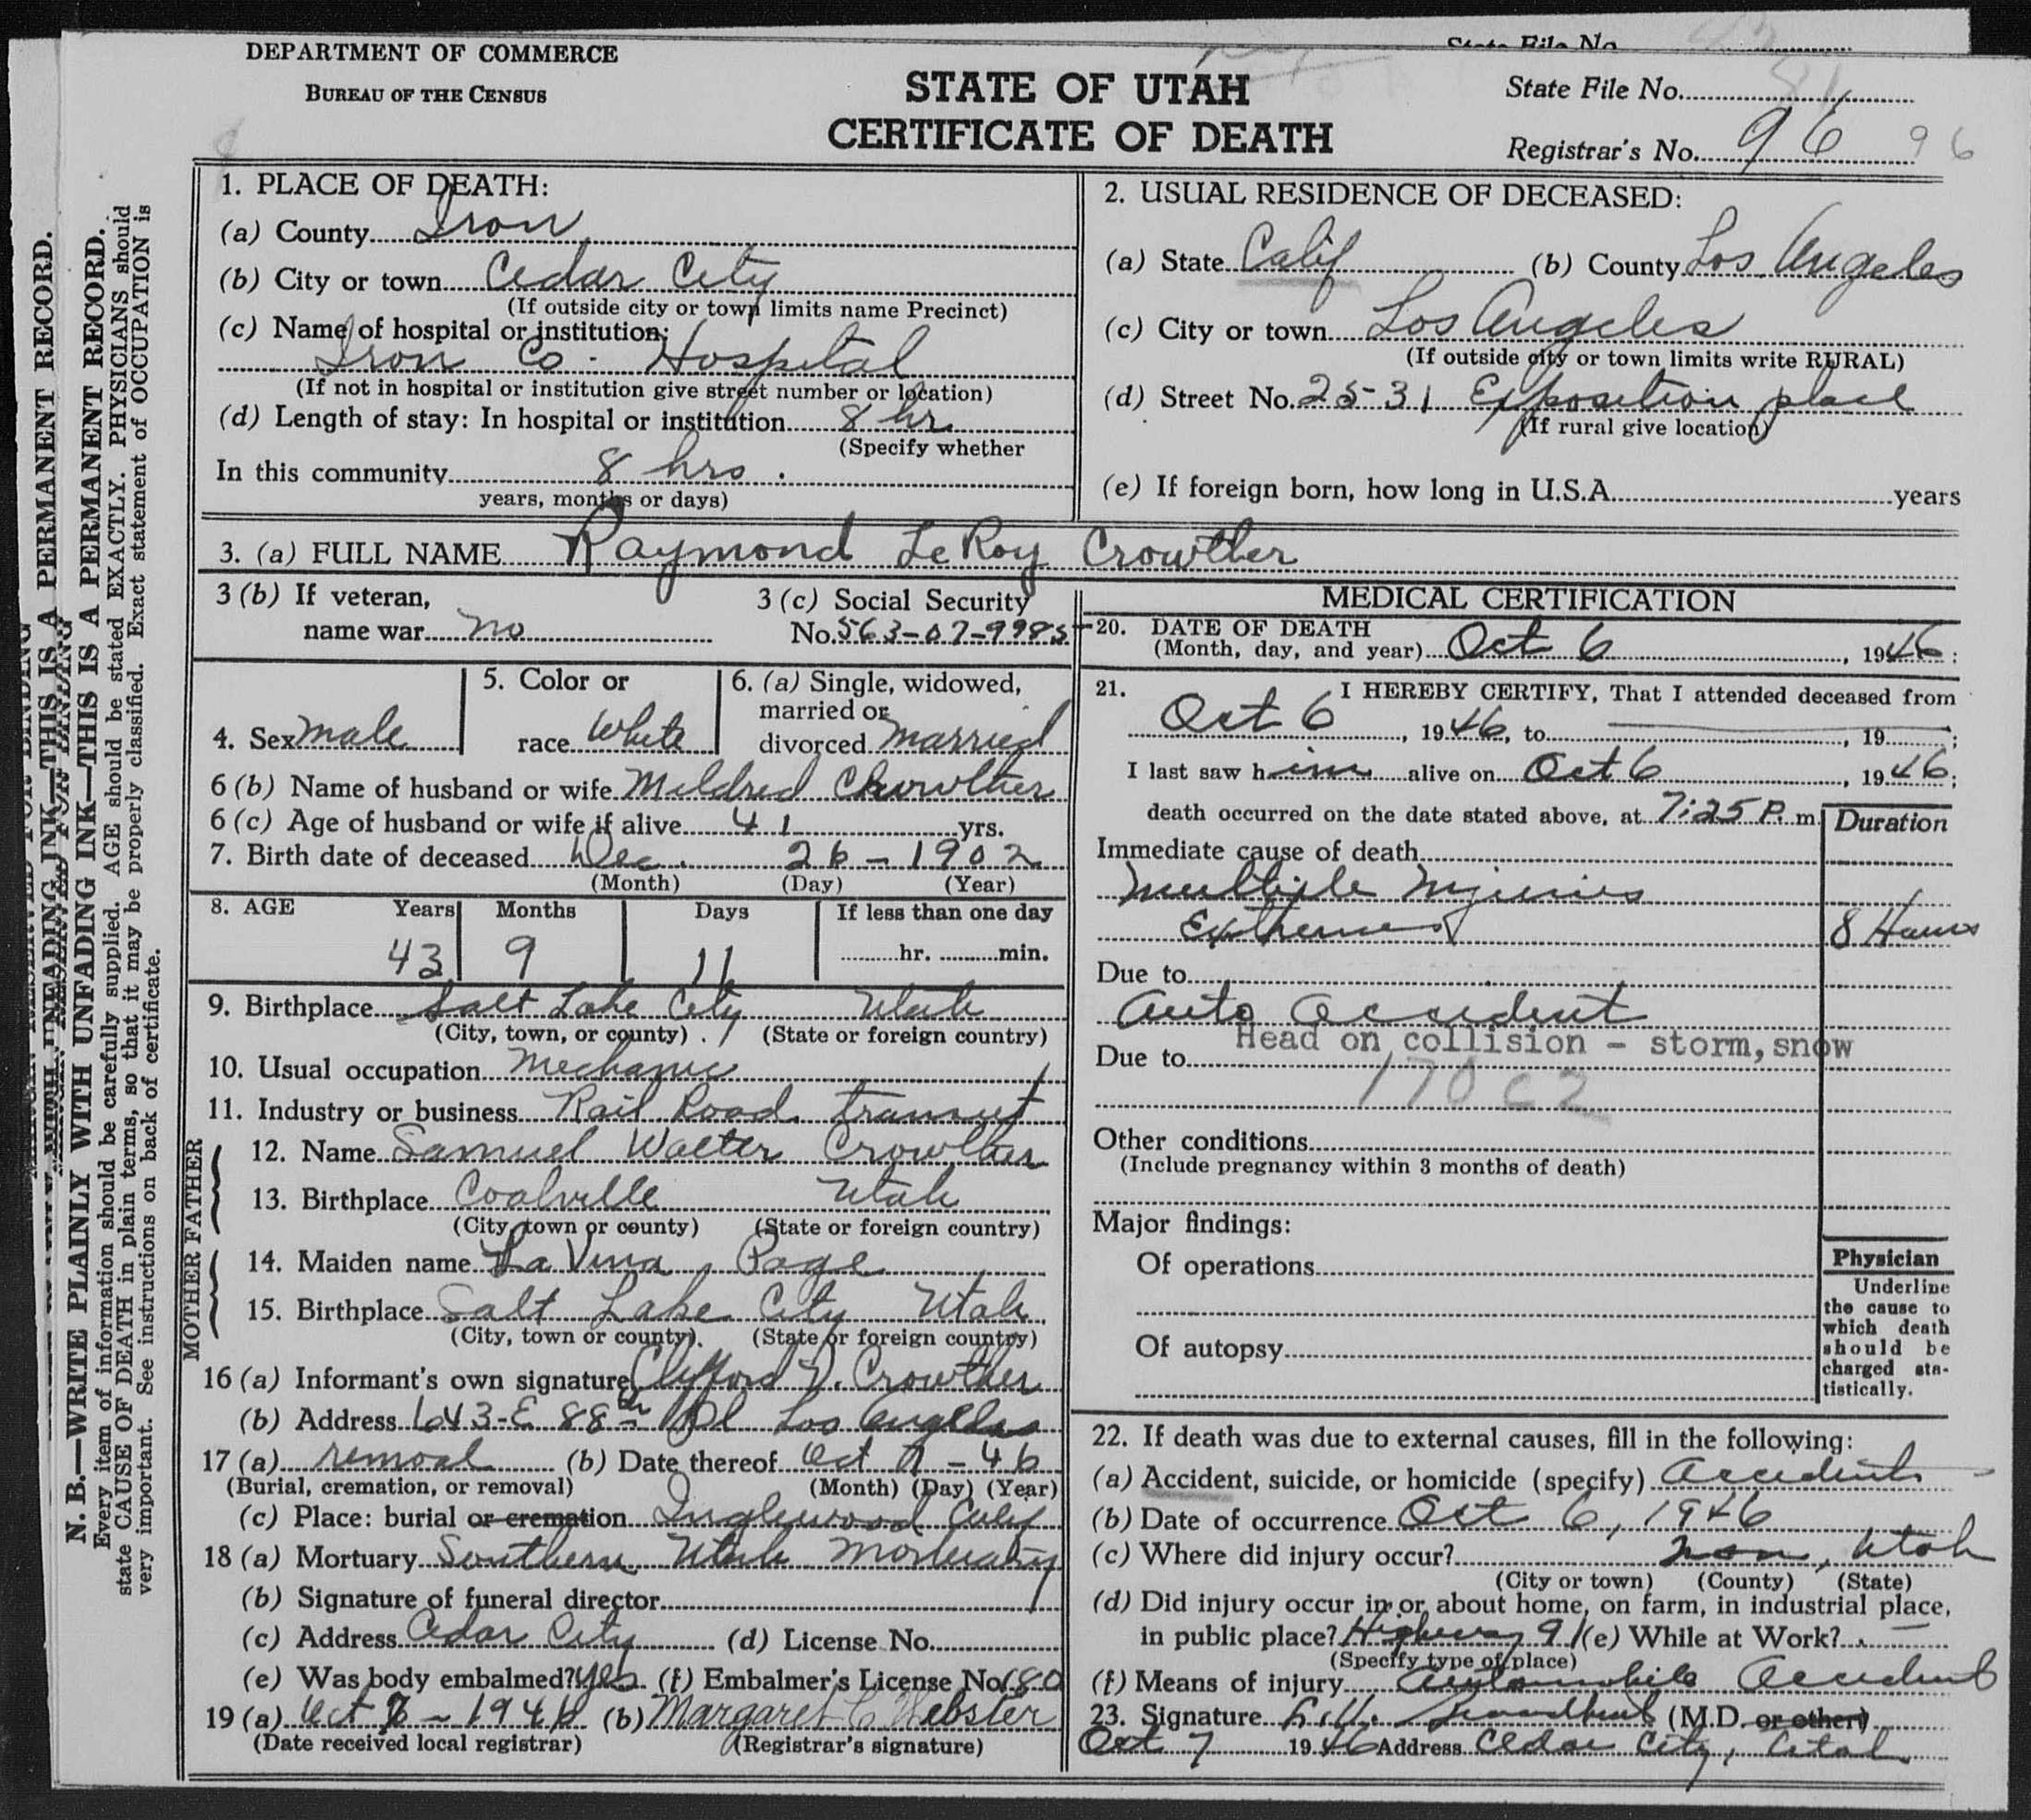 DEPARTMENT OF COMMERCE
BUREAU OF THE CENSUS
STATE OF UTAH
CERTIFICATE OF DEATH
State File No.
State File No. 81
Registrar's No. 96 96
N. B.—WRITE PLAINLY WITH UNFADING INK—THIS IS A PERMANENT RECORD.
Every item of information should be carefully supplied. AGE should be stated EXACTLY. PHYSICIANS should
state CAUSE OF DEATH in plain terms, so that it may be properly classified. Exact statement of OCCUPATION is
very important. See instructions on back of certificate.
1. PLACE OF DEATH:
(a) County Iron
(b) City or town Cedar City
(If outside city or town limits name Precinct)
(c) Name of hospital or institution:
Iron Co. Hospital
(If not in hospital or institution give street number or location)
(d) Length of stay: In hospital or institution 8 hr.
(Specify whether
In this community 8 hrs.
years, months or days)
2. USUAL RESIDENCE OF DECEASED:
(a) State Calif (b) County Los Angeles
(c) City or town Los Angeles
(If outside city or town limits write RURAL)
(d) Street No. 25-31 Exposition place
(If rural give location)
(e) If foreign born, how long in U.S.A. years
3. (a) FULL NAME Raymond LeRoy Crowther
3 (b) If veteran,
name war no
3 (c) Social Security
No. 563-07-9985
4. Sex male
5. Color or
race White
6. (a) Single, widowed,
married or
divorced Married
6 (b) Name of husband or wife Mildred Crowther
6 (c) Age of husband or wife if alive 41 yrs.
7. Birth date of deceased Dec. 26-1902
(Month) (Day) (Year)
8. AGE Years Months Days If less than one day
43 9 11 hr. min.
9. Birthplace Salt Lake City Utah
(City, town, or county) (State or foreign country)
10. Usual occupation Mechanic
11. Industry or business Rail Road transit
FATHER
12. Name Samuel Walter Crowther
13. Birthplace Coalville Utah
(City, town or county) (State or foreign country)
MOTHER
14. Maiden name La Vina Page
15. Birthplace Salt Lake City Utah
(City, town or county). (State or foreign country)
16 (a) Informant's own signature Clifford V. Crowther
(b) Address 643-E 88th Pl Los Angeles
17 (a) removal (b) Date thereof Oct -46
(Burial, cremation, or removal) (Month) (Day) (Year)
(c) Place: burial or cremation Inglewood Calif
18 (a) Mortuary Southern Utah Mortuary
(b) Signature of funeral director
(c) Address Cedar City (d) License No.
(e) Was body embalmed? yes (f) Embalmer's License No. 180
19 (a) Oct -1946 (b) Margaret C Webster
(Date received local registrar) (Registrar's signature)
MEDICAL CERTIFICATION
20. DATE OF DEATH
(Month, day, and year) Oct 6, 1946:
21. I HEREBY CERTIFY, That I attended deceased from
Oct 6, 1946, to , 19 ;
I last saw him alive on Oct 6, 1946;
death occurred on the date stated above, at 7:25 P. m.
Duration
Immediate cause of death
Multiple Injuries
8 Hours
Due to
Auto accident
Head on collision - storm, snow
Due to
170 c 2
Other conditions
(Include pregnancy within 3 months of death)
Major findings:
Of operations
Of autopsy
Physician
Underline
the cause to
which death
should be
charged sta-
tistically.
22. If death was due to external causes, fill in the following:
(a) Accident, suicide, or homicide (specify) accident
(b) Date of occurrence Oct 6, 1946
(c) Where did injury occur? Iron, Utah
(City or town) (County) (State)
(d) Did injury occur in or about home, on farm, in industrial place,
in public place? Highway 91 (e) While at Work?
(Specify type of place)
(f) Means of injury Automobile Accident
23. Signature (M.D. or other)
Oct 7 1946 Address Cedar City, Utah